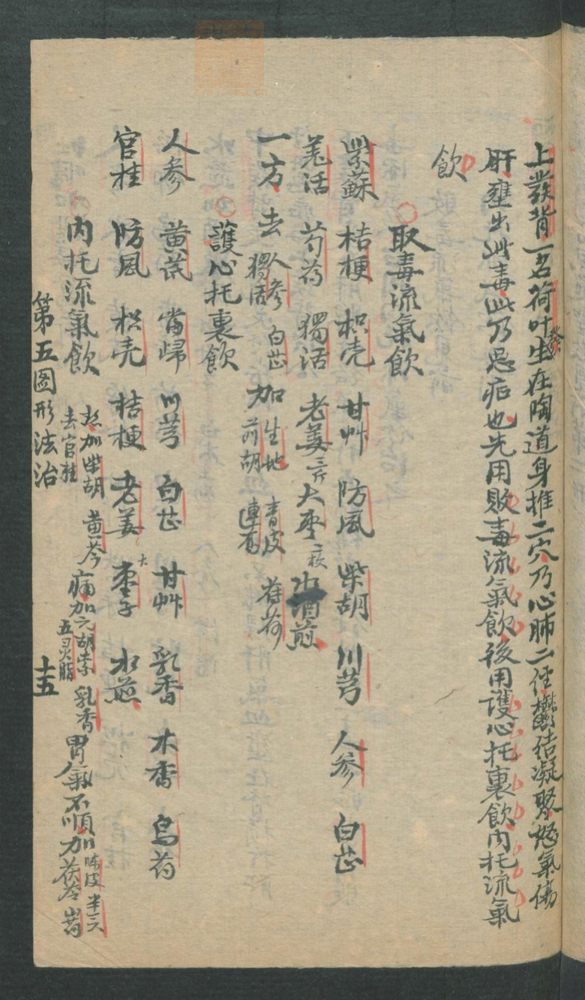 上發背一名荷叶發生在陶道身推二穴乃心肺二経欝结凝聚怒氣傷
肝壅出此毒此乃恶症也先用败毒流氣飲後用護心托裏飲内托流氣
飲
〇取毒流氣飲
紫蘇 桔梗 枳壳 甘艸 防風 柴胡 川芎 人参 白芷
羗活 芍药 獨活 老姜三片 大枣二枚 水酒煎
一方去人参 獨活 白芷 加生地 前胡 青皮 連翘 薄荷
〇護心托裏飲
人参 黄芪 當歸 川芎 白芷 甘艸 乳香 木香 烏药
官桂 防風 枳壳 桔梗 老姜 大枣子 水煎
内托流氣飲 加柴胡 去官桂 黄芩 痛加元胡索 五灵脂 乳香 胃氣不順加陈皮 半夏 加茯苓
第五圖形法治 十五